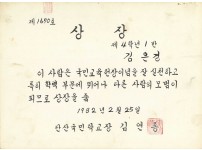 제1650호
상장
제4학년1반
김은경
이 사람은 국민교육헌장이념을 잘 실천하고
특히 학력 부문에 뛰어나 다른 사람의 모범이
되므로 상장을 줌
1982년 2월 25일
안산국민학교장 김연